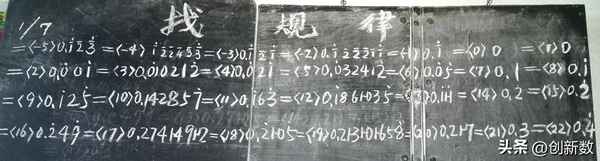 找 规 律
1/7
=<-5>0.i2̇3̇=<-4> i2̇2̇4̇5̇3̇=<-3>0.i2̇=<-2>0.i2̇2̇3̇ii=<-1>0.i =<0>0 =<1>0
=<2>0.0̇0i=<3>0.010212=<4>0.02i=<5>0.032412=<6>0.05=<7>0.1=<8>0.i
=<9>0.i25̇=<10>0.142857̇=<11>0.i63̇=<12>0.186i035= 0.iii=<14>0.2=<15>0.2̇
=<16>0.2̇49̇=<17>0.274149i7=<18>0.2̇i05̇=<19>0.213i01658̇=<20>0.2i7=<21>0.3=<22>0.4̇
头条 @创新数